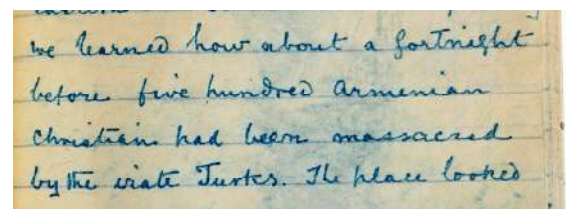 we learned how about a fortnight
before five hundred Armenian
Christian had been massacred
by the irate Turks. The place looked